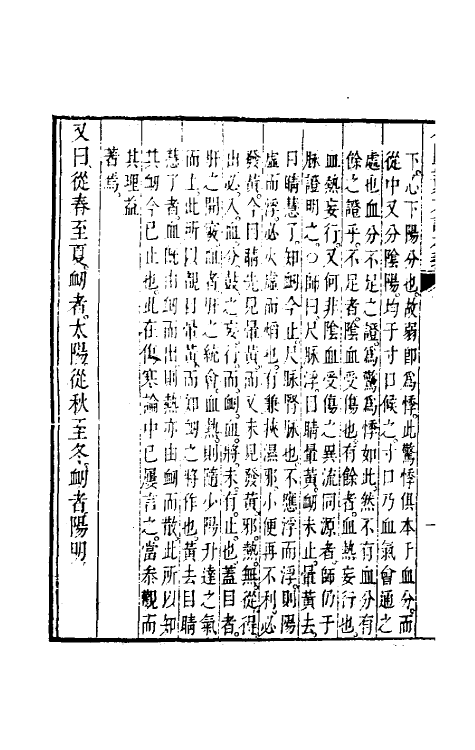 下。心下陽分也。故弱即為悸。此驚悸俱本于血分。而
從中又分陰陽。均于寸口候之。寸口乃血氣會通之
處也。血分不足之證。為驚為悸如此。然不有血分有
餘之證乎。不足者。陰血受傷也。有餘者。血熱妄行也。
血熱妄行。又何非陰血受傷之異流同源者。師仍于
脉證明之。師曰。尺脉浮。目睛暈黃。衄未止。暈黃去。
目睛慧了。知衄今止。尺脉腎脉也。不應浮而浮。則陽
虛而浮。必火虛而熖也。有兼挾濕邪。小便再不利。必
發黃。今目睛先見暈黃。而又未見發黃。邪熱。無從得
出。必入血分鼓之妄行。而衄血。將未有止也。蓋目者。
肝之開竅。血者肝之統會。血熱則隨少陽升達之氣
而上。此所以觀目暈黃。而知衄之將作也。黃去目睛
慧了者。血既由衄而出。則熱亦由衄而散。此所以知
其衄今已止也。此在傷寒論中已屢言之。當叅觀而
其理益
著焉。
又曰。從春至夏。衄者。太陽。從秋至冬。衄者。陽明。